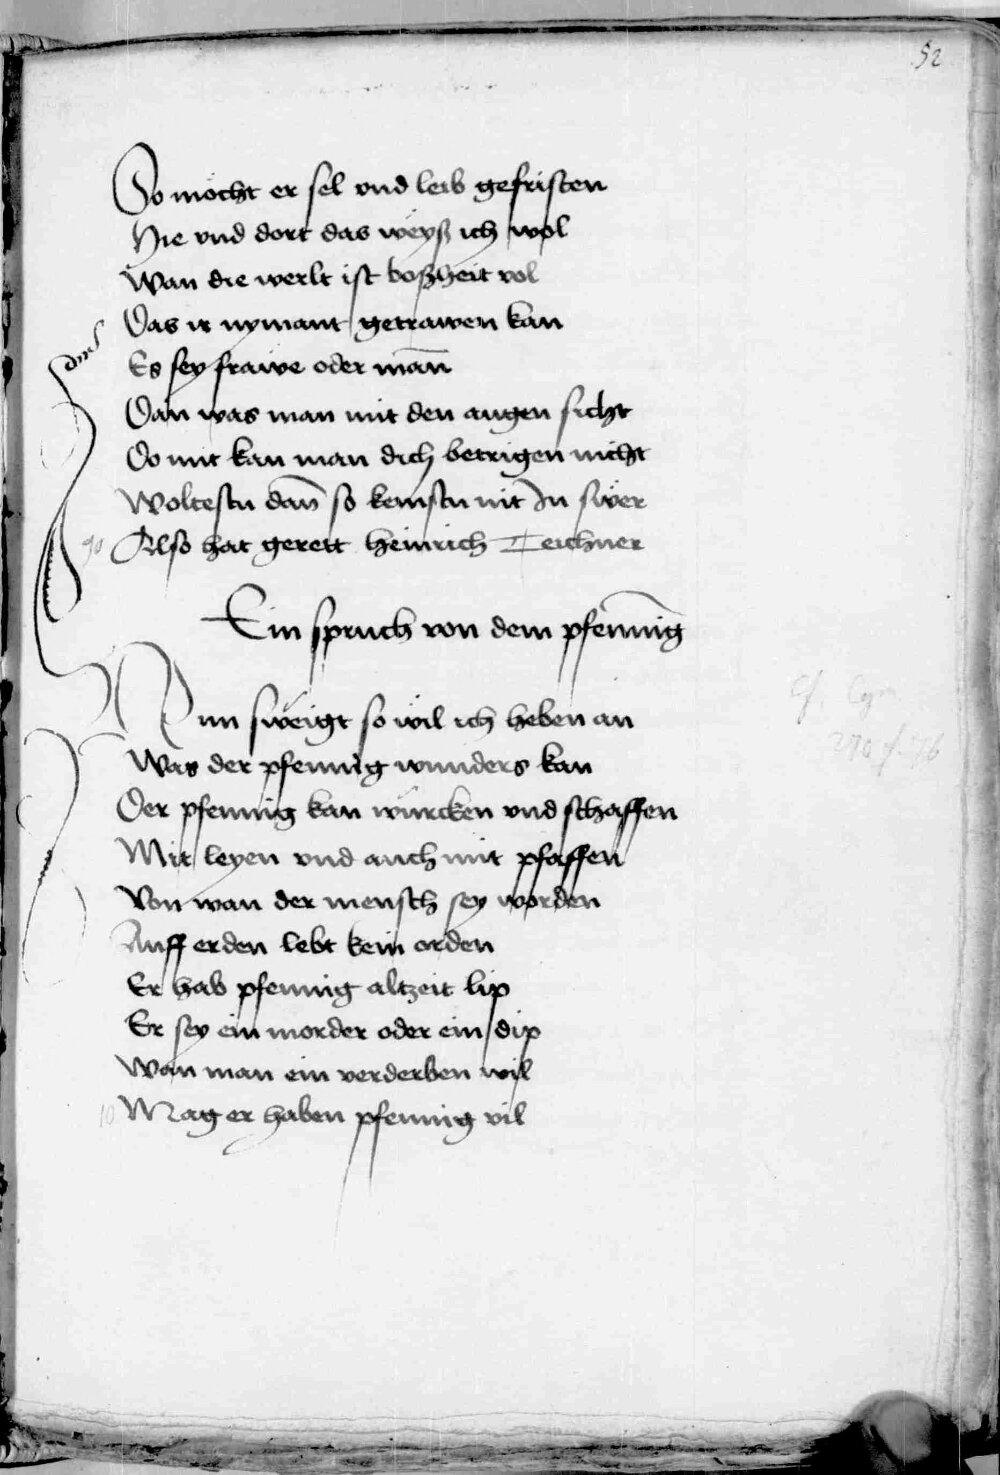 52
So mocht er sel vnd leib gefristen
Hie vnd dort das weyß ich wol
Wan die werlt ist boßheit vol
Das ir nymant getrawen kan
Es sey frawe oder man̄
Dan was man mit den augen sicht
Do mit kan man dich betrigen nicht
Woltestu dan̄ so kemstu nit In swër
90 Also hat gerett heinrich Teichner
Ein spruch von dem pfennīg
Nun sweigt so wil ich heben an
Was der pfennig wunders kan
Der pfennig kan würcken vnd schaffen
Mit leyen vnd auch mit pfaffen
Von wan der mensch sey worden
Auff erden lebt kein orden
Er hab pfennig altzeit lip
Er sey ein morder oder ein dip
Wan man ein verderben wil
10 Mag er haben pfennig vil
Cf. Cgm
270 f.